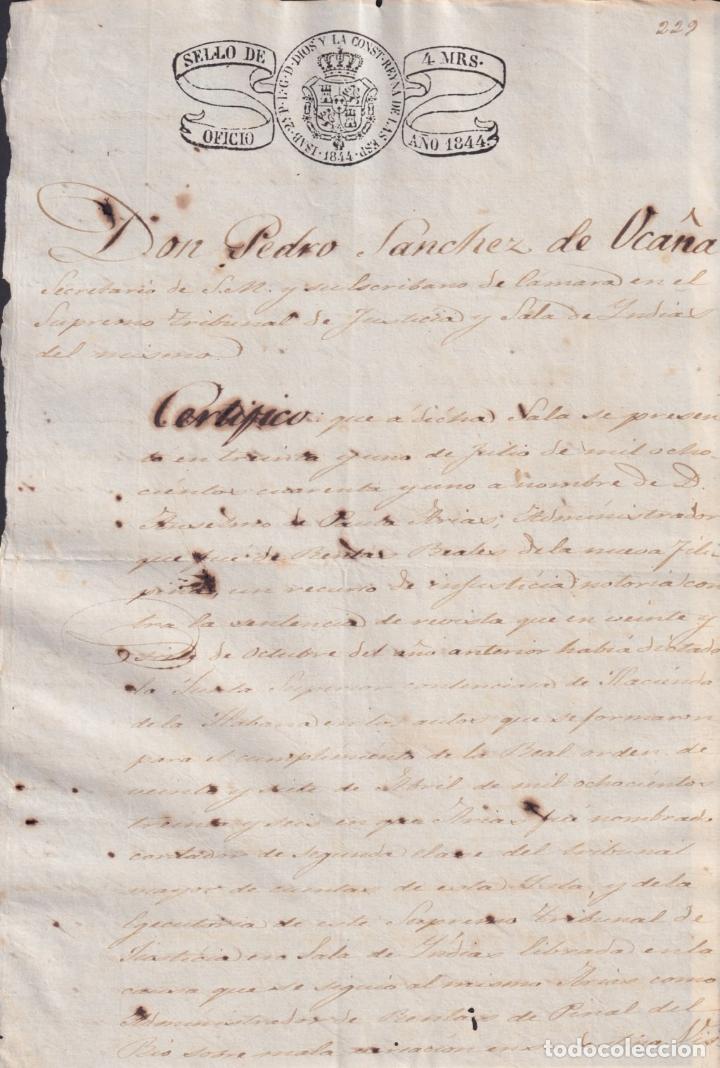 229
SELLO DE OFICIO
ISAB. 2ª P. L. G. D. DIOS Y LA CONST. REYNA DE LAS ESP. 1844
4 MRS. AÑO 1844.
Don Pedro Sanchez de Ocaña
Secretario de S.M. y su Escribano de Camara en el
Supremo Tribunal de Justicia y Sala de Indias
del mismo.
Certifico: que á dicha Sala se presen
tó en treinta y uno de Julio de mil ocho
cientos cuarenta y uno a nombre de D.
Anselmo de Paula Arias, Administrador
que fué de Rentas Reales de la nueva Fili
pina un recurso de injusticia notoria con
tra la sentencia de revista que en veinte y
siete de Octubre del año anterior habia dictado
la Junta Superior contenciosa de Hacienda
de la Habana en los autos que se formaron
para el cumplimiento de la Real orden de
veinte y siete de Abril de mil ochocientos
treinta y seis en que Arias fué nombrado
contador de segunda clase del tribunal
mayor de cuentas de esta Isla, y de la
Ejecutoria de este Supremo Tribunal de
Justicia en Sala de Indias librada en la
causa que se siguió al mismo Arias como
Administrador de Rentas de Pinal del
Rio sobre mala
todocoleccion.net